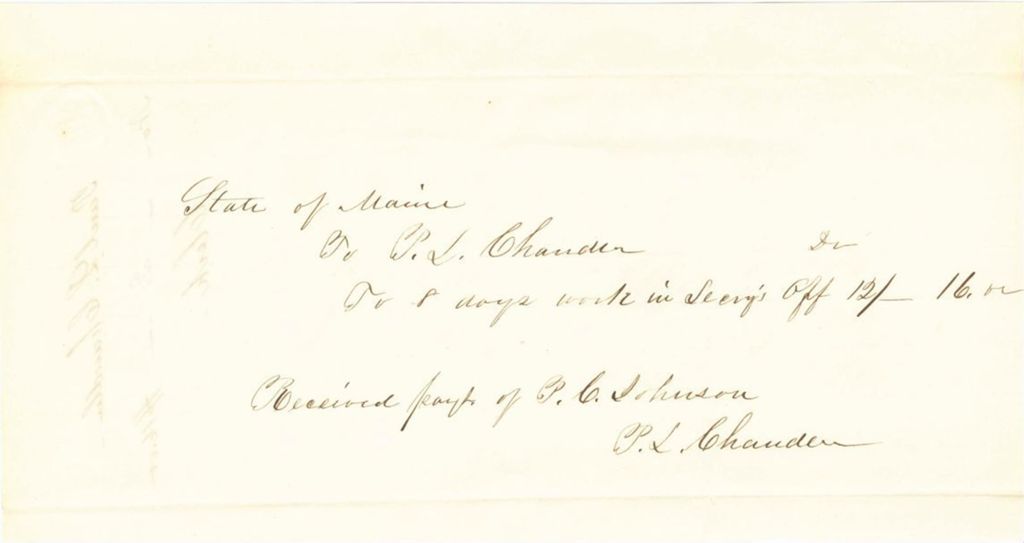 State of Maine
To P. L. Chandler Dr
To 8 days work in Secry's Off 12/— 16.00
Received payt of P. C. Johnson
P. L. Chandler